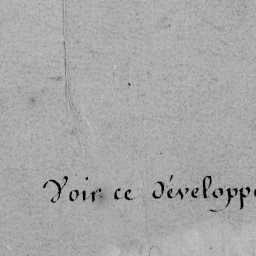 Voir ce développe